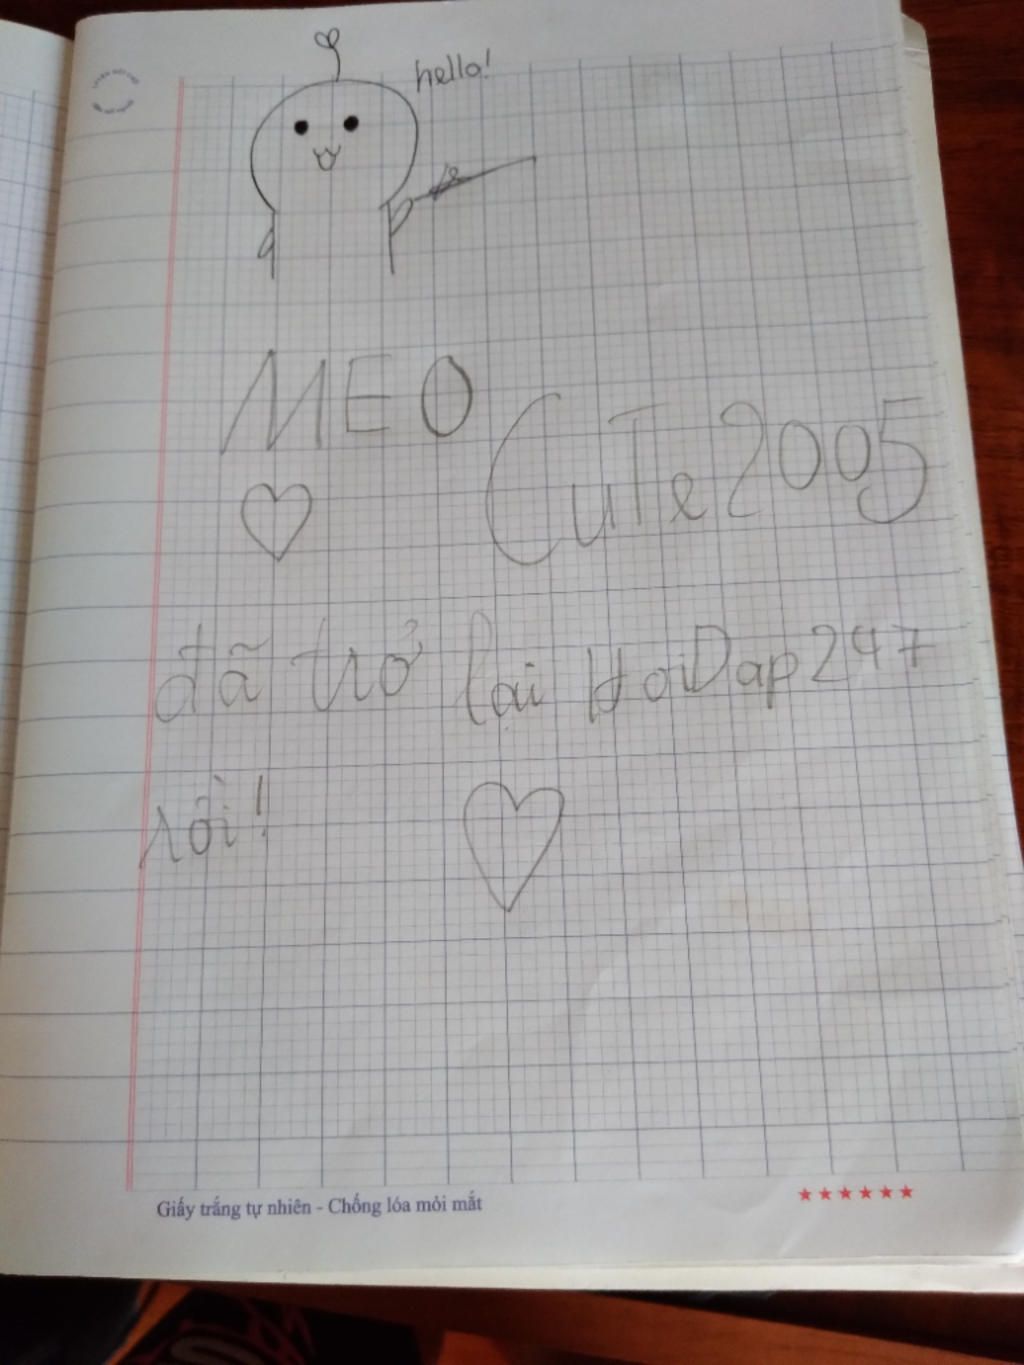 hello!
MEO
CuTe2005
đã trở lại HoiDap247
rồi!
Giấy trắng tự nhiên - Chống lóa mỏi mắt